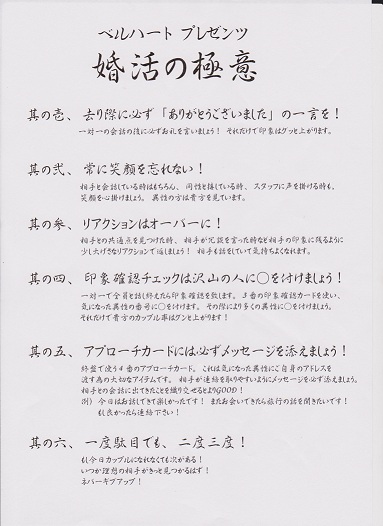 ベルハート プレゼンツ
婚活の極意
其の壱、去り際に必ず「ありがとうございました」の一言を！
一対一の会話の後に必ずお礼を言いましょう！ それだけで印象はグッと上がります。
其の弐、常に笑顔を忘れない！
相手と会話している時はもちろん、同性と接している時、スタッフに声を掛ける時も、
笑顔を心掛けましょう。異性の方は貴方を見ています。
其の参、リアクションはオーバーに！
相手との共通点を見つけた時、相手が冗談を言った時など相手の印象に残るように
少し大げさなリアクションで返しましょう！ 相手も話をしていて気持ちよくなれます。
其の四、印象確認チェックは沢山の人に〇を付けましょう！
一対一で全員と話し終えたら印象確認を致します。３番の印象確認カードを使い、
気になった異性の番号に〇を付けます。その際により多くの異性に〇を付けましょう。
それだけで貴方のカップル率はグンと上がります！
其の五、アプローチカードには必ずメッセージを添えましょう！
終盤で使う４番のアプローチカード。これは気になった異性にご自身のアドレスを
渡す為の大切なアイテムです。相手が連絡を取りやすいようにメッセージを必ず添えましょう。
相手との会話に出てきたことを織り交ぜるとよりGOOD！
例）今日はお話しできて楽しかったです！ またお会いできたら旅行の話を聞きたいです！
もし良かったら連絡下さい！
其の六、一度駄目でも、二度三度！
もし今日カップルになれなくても次がある！
いつか理想の相手がきっと見つかるはず！
ネバーギブアップ！